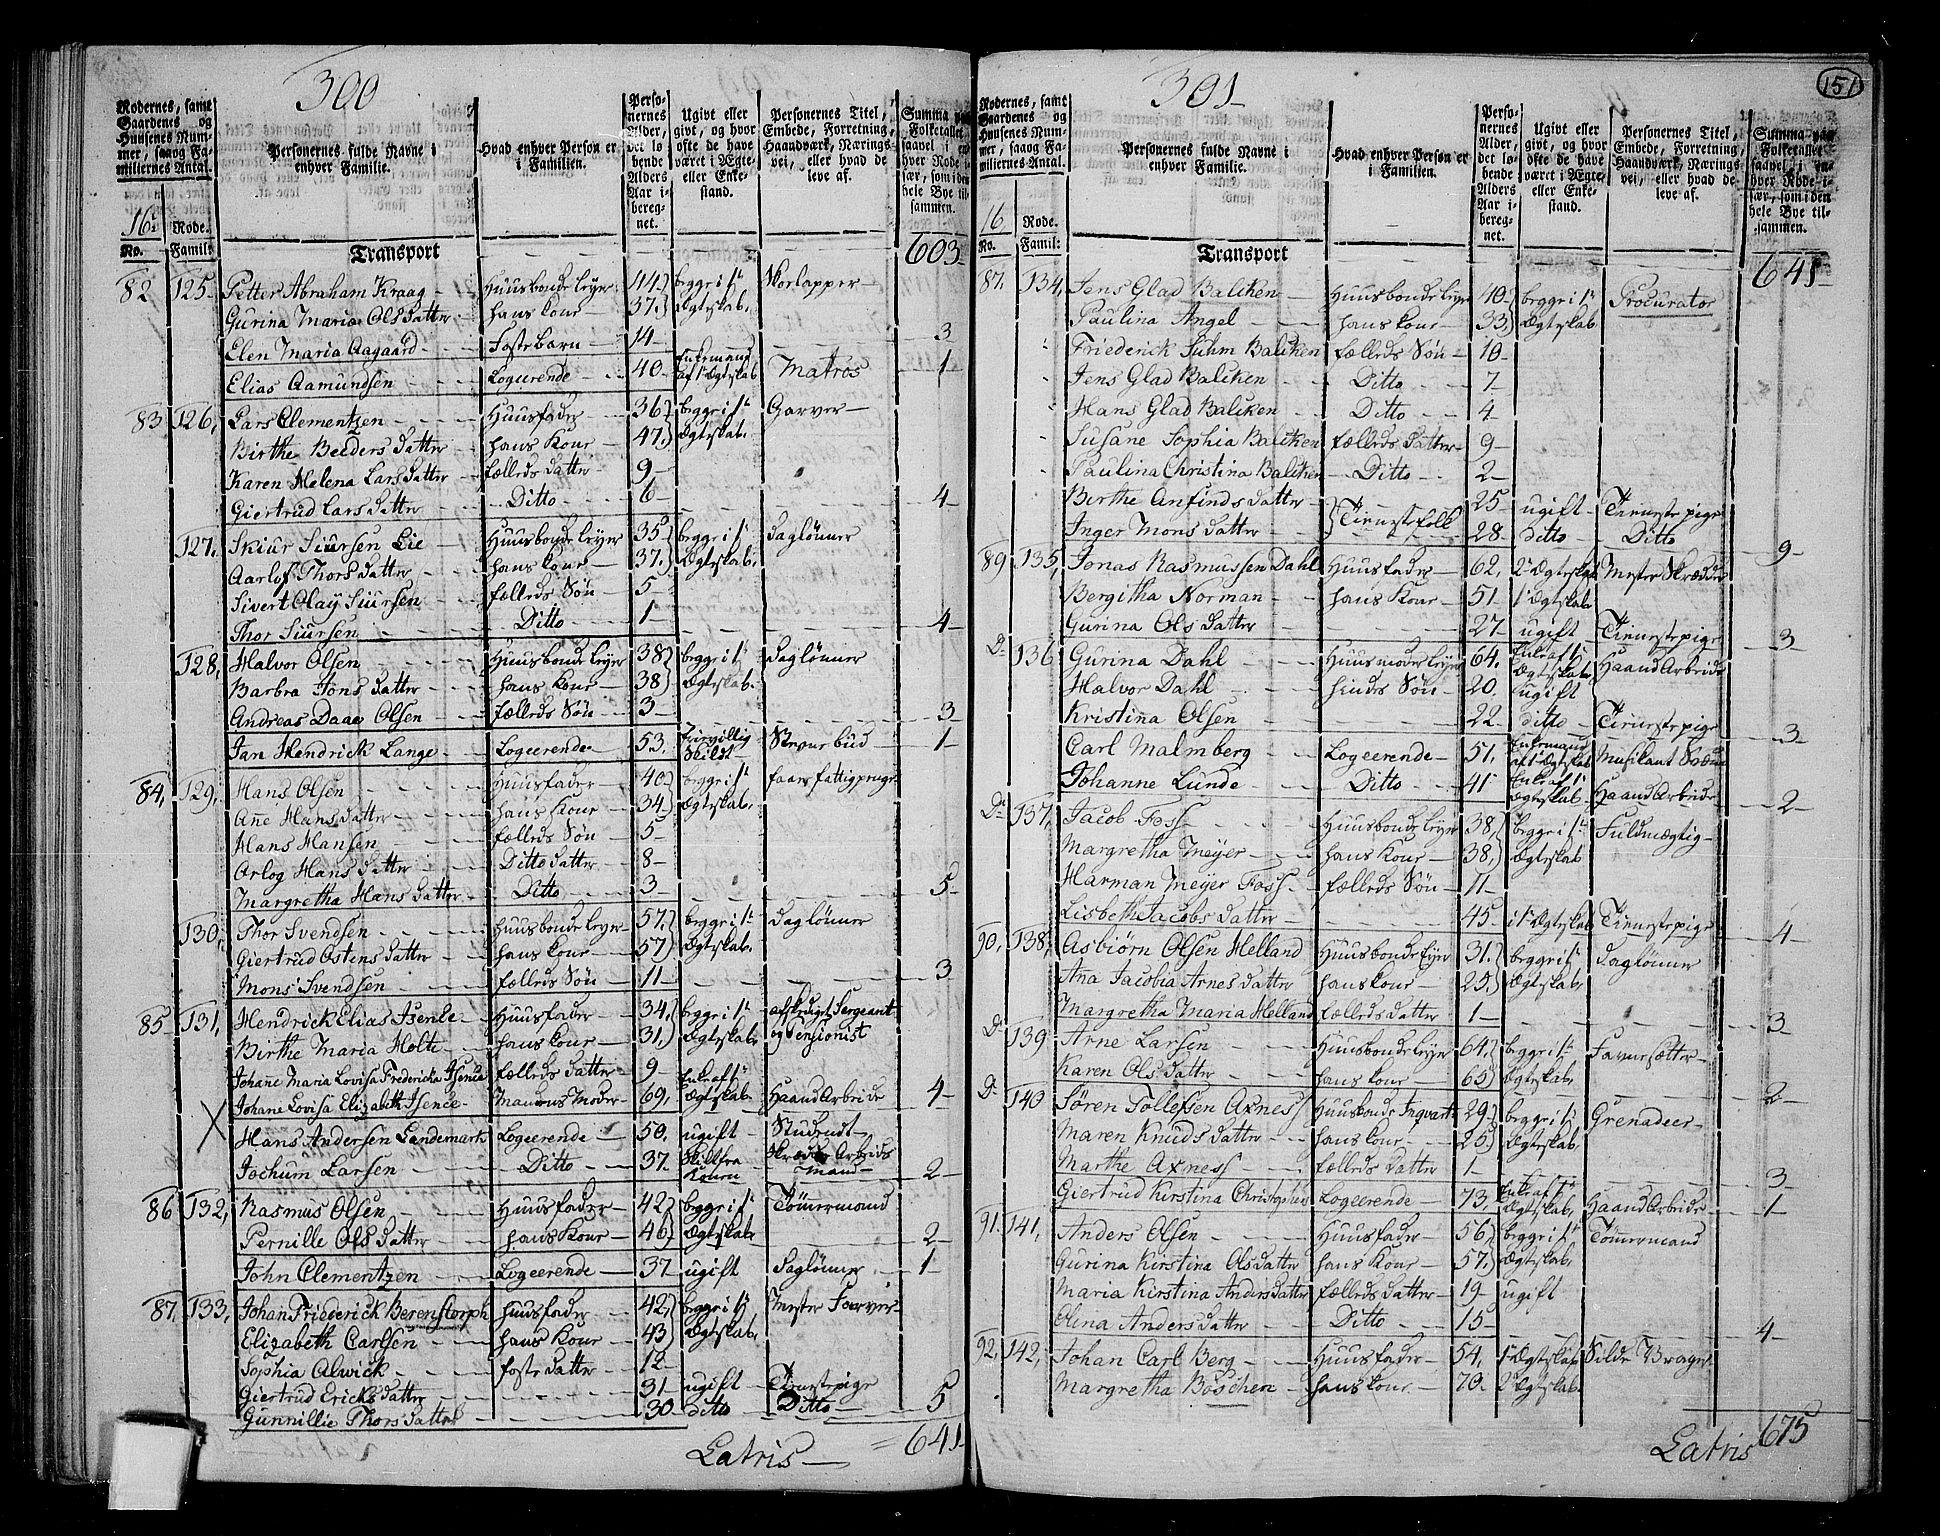 300
Rodernes, samt Gaardenes og Huusenes Nummer, saavog Familiernes Antal. | Personernes fulde Navne i enhver Familie. | Hvad enhver Person er i Familien. | Personernes Alder, det løbende Alders Aar iberegnet. | Ugivt eller givt, og hvor ofte de have været i Ægte- eller Enkestand. | Personernes Titel, Embede, Forretning, Haandværk, Næringsvei, eller hvad de leve af. | Summa paa Folketallet saavel i enhver Rode især, som i den hele Bye tilsammen.
16 Rode.
No. Famil:
Transport 603
82 125 Petter Abraham Kraag Huusbonde leyer 44 begge i 1te Skorlapper
Gurina Maria Olsdatter hans kone 37 Ægteskab.
Elen Maria Aagaard Fosterbarn 14 3
Elias Aamundsen Logeerende 40 Enkemand af 1t Ægteskab Matros 1
83 126, Lars Clementzen Huusfader 36 begge i 1te Garver
Birthe Beeders datter hans Kone 47 Ægteskab.
Karen Helena Larsdatter fælleds datter 9
Giertrud Larsdatter Ditto 6 4
127. Skiur Siursen Lie Huusbonde leyer 35 begge i 1te daglønner
Aarlof Thorsdatter hans kone 37 Ægteskab.
Sivert Olay Siursen fælleds Søn 5
Thor Siursen Ditto 1 4
128, Halvor Olsen Huusbonde leyer 38 begge i 1te daglønner
Barbra Jons datter hans kone 38 Ægteskab.
Andreas Daae Olsen fælleds Søn 3 3
Jan Hendrick Lange Logeerende 53. frievillig skildt Stevnebud 1
84, 129, Hans Olsen Huusfader 40 begge i 1te faaer fattigpenge
Añe Hansdatter hans Kone 34 Ægteskab.
Hans Hansen fælleds Søn 5
Orlog Hansdatter Ditto datter 8
Margretha Hans datter Ditto 3 5
130, Thor Svendsen huusbonde leyer 57 begge i 1te daglønner
Giertrud Ostens datter hans kone 57 Ægteskab.
Mons Svendsen fælleds Søn 11 3
85 131, Hendrick Elias Isenée Huusfader 34, begge i 1te afskediget Sergeant
Birthe Maria Holte hans kone 31, Ægteskab. og Pensionist
Johane Maria Lovisa Fredericka Isenée fælleds datter 9
Johane Lovisa Elizabeth Isenée Mandens Moder 69, Enke af 1te Ægteskab. Haand Arbeide 4
X Hans Andersen Landemark Logeerende 50. ugift Studendt
Jochum Larsen Ditto 37. skilt fra konen skræder Arbeids mand 2
86 132, Rasmus Olsen Huusfader 42 begge i 1te Tømermand
Pernille Ols datter hans Kone 46 Ægteskab 2
John Clementzen Logeerende 37 ugift Daglønner 1
87, 133, Johan Friederick Berenstorph huusfader 42, begge i 1te Mester Farver
Elizabeth Carlsen hans Kone 43 Ægteskab.
Sophia Alwick foster datter 12
Giertrud Ericks datter 31 ugift Tieneste pige
Gunnillie Thors datter 30 ditto Ditto 5
Latris 641

151
301
Rodernes, samt Gaardenes og Huusenes Nummer, saaog Familiernes Antal. | Personernes fulde Navne i enhver Familie. | Hvad enhver Person er i Familien. | Personernes Alder, det løbende Alders Aar iberegnet. | Ugivt eller givt, og hvor ofte de have været i Ægte- eller Enkestand. | Personernes Titel, Embede, Forretning, Haandværk, Næringsvei, eller hvad de leve af. | Summa paa Folketallet saavel i enhver Rode især, som i den hele Bye tilsammen.
16 Rode.
No. Famil:
Transport 641
87. 134, Jens Glad Balcken Huusbonde leyer 40 begge i 1te Procurator
Paulina Angel hans kone 33 Ægteskab
Friederick Suhm Balcken fælleds Søn 10
Jens Glad Balcken Ditto 7
Hans Glad Balcken Ditto 4
Susane Sophia Balcken fælleds datter 9
Paulina Christina Balcken Ditto 2
Birthe Anfinds datter Tienestefolk 25 ugift Tieneste pige
Inger Mons datter 28 ditto Ditto 9
89 135, Jonas Rasmussen Dahl Huusfader 62, 2t Ægteskab Mester Skrædder
Bergitha Norman hans Kone 51 1t Ægteskab
Gurina Ols datter 27 ugift Tienestepige 3
Do 136 Gurina Dahl Huusmoder leyer 64, Enke af 1t Ægteskab Haand Arbeide
Halvor Dahl hindes Søn 20. ugift
Kristina Olsen 22 ditto Tienestepige 3
Carl Malmberg Logeerende 51, Enkemand af 1t Ægteskab Musikant Svend
Johanne Lunde Ditto 41 Enke af 1t Ægteskab Haand Arbeide 2
Do 137, Jacob Foss Huusbonde leyer 38, begge i 1te Fuldmægtig
Margretha Meÿer hans Kone 38, Ægteskab
Harman Meÿer Foss fælleds Søn 11
Lisbeth Jacobs datter 45 i 1t Ægteskab Tienestepige 4
90, 138, Asbiørn Olsen Helland Huusbonde leyer 31. begge i 1te daglønner
Aña Jacobia Arnes datter hans kone 25, Ægteskab.
Margretha Maria Helland fælleds datter 1 3
Do 139 Arne Larsen Huusbonde leyer 64. begge i 1te Farvesætter
Karen Ols datter hans kone 65 Ægteskab, 2
Do 140 Sören Tollefsen Axness Huusbonde Inqvart. 29 begge i 1te Grenadeer
Maren Knuds datter hans kone 25 Ægteskab,
Marthe Axness fælleds datter 1 3
Giertrud Kirstina Christophers Logeerende 73, Enke af 1te Ægteskab. Haand Arbeide 1
91. 141, Anders Olsen Huusfader 56, begge i 1te Tømermand
Gurina Kirstina Olsdatter hans Kone 57. Ægteskab.
Maria Kirstina Anders datter fælleds datter 19 ugift
Elina Anders datter Ditto 15 4
92, 142, Johan Carl Berg Huusfader 54, 1t Ægteskab Silde Vrager
Margretha Böschen hans kone 70. 2t Ægteskab.
Latris 675